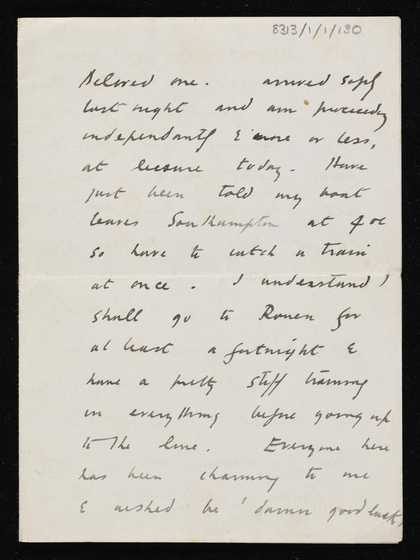 8313/1/1/130
Beloved one. arrived safely
last night and am proceeding
independantly & more or less,
at leisure today. Have
just been told my boat
leaves Southampton at 4 oc
so have to catch a train
at once. I understand I
shall go to Rouen for
at least a fortnight &
have a pretty stiff training
in everything before going up
to the line. Everyone here
has been charming to me
& wished me 'damn good luck,